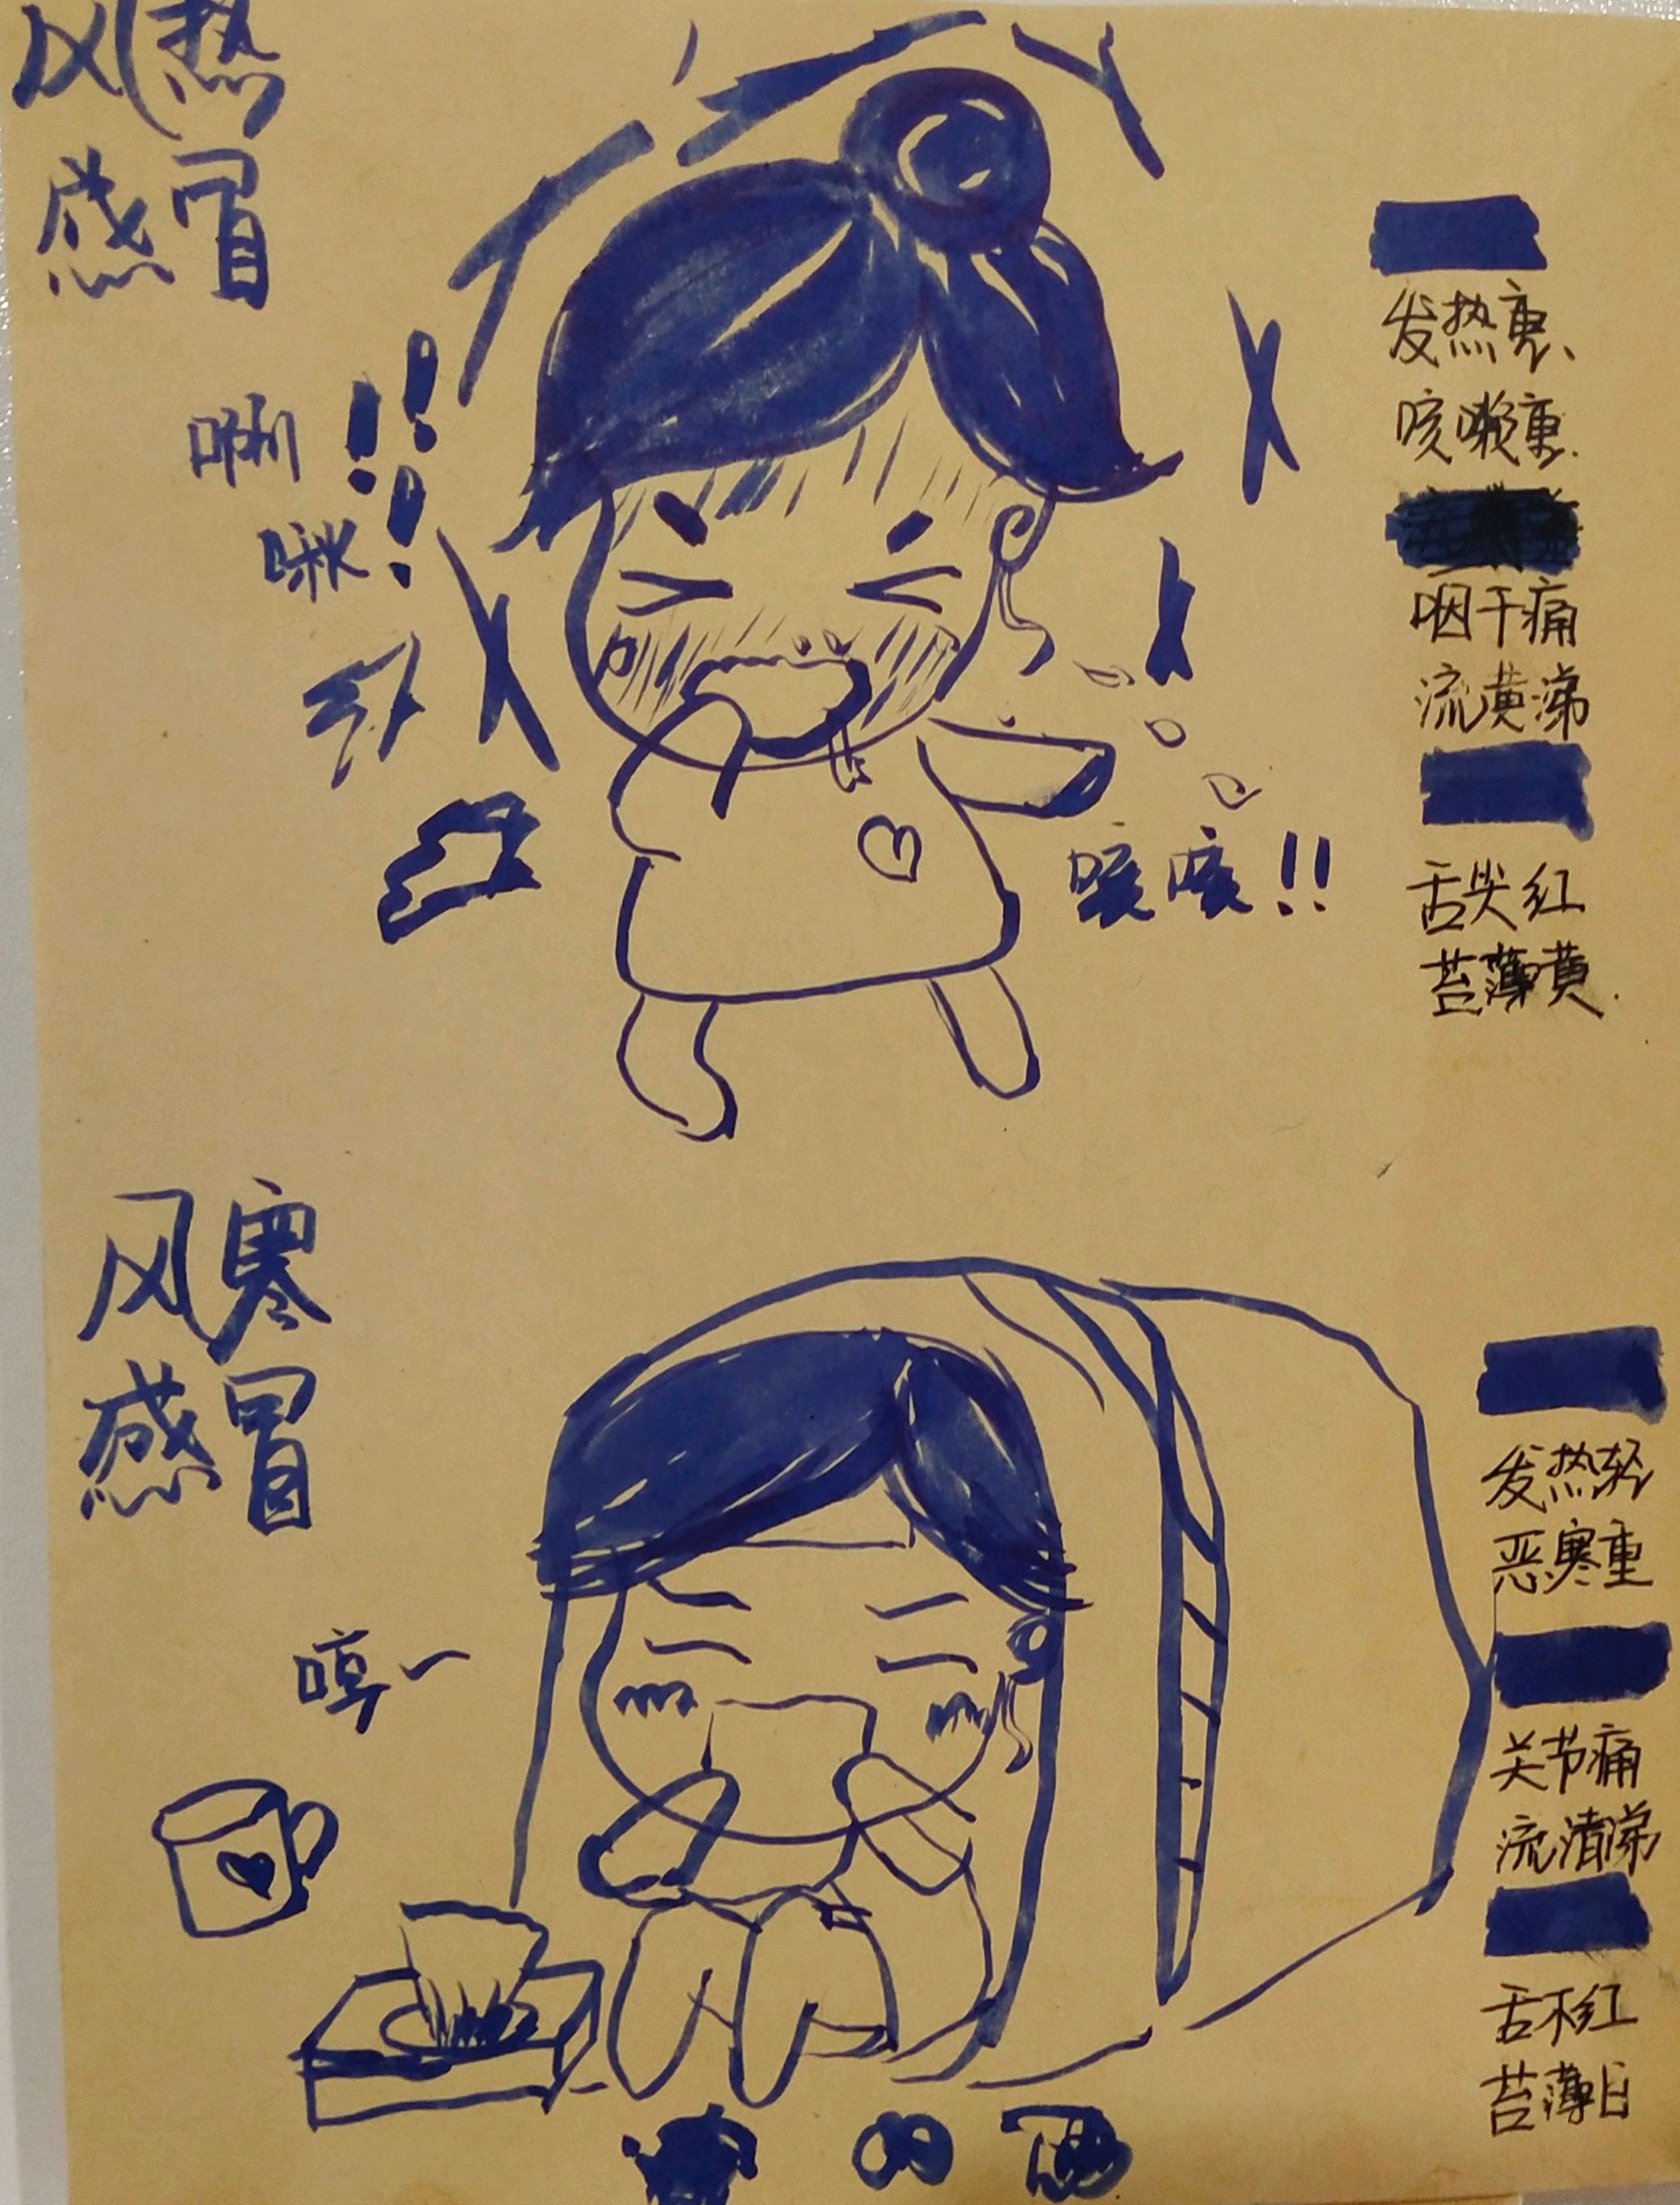 风热
感冒
唰
啾!!!
咳咳!!
发热重、
咳嗽重.
咽干痛
流黄涕
舌尖红
苔薄黄.
风寒
感冒
哼~
发热轻
恶寒重
关节痛
流清涕
舌不红
苔薄白